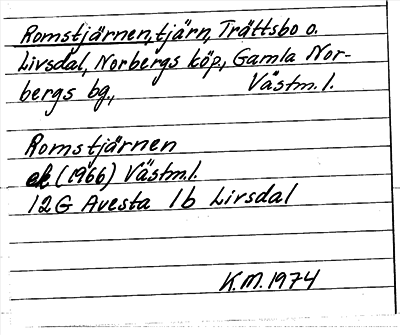 Romstjärnen, tjärn, Trättsbo o.
Livsdal, Norbergs köp., Gamla Nor-
bergs bg., Västm. l.
Romstjärnen
ek (1966) Västm. l.
12G Avesta 1b Livsdal
K.M. 1974